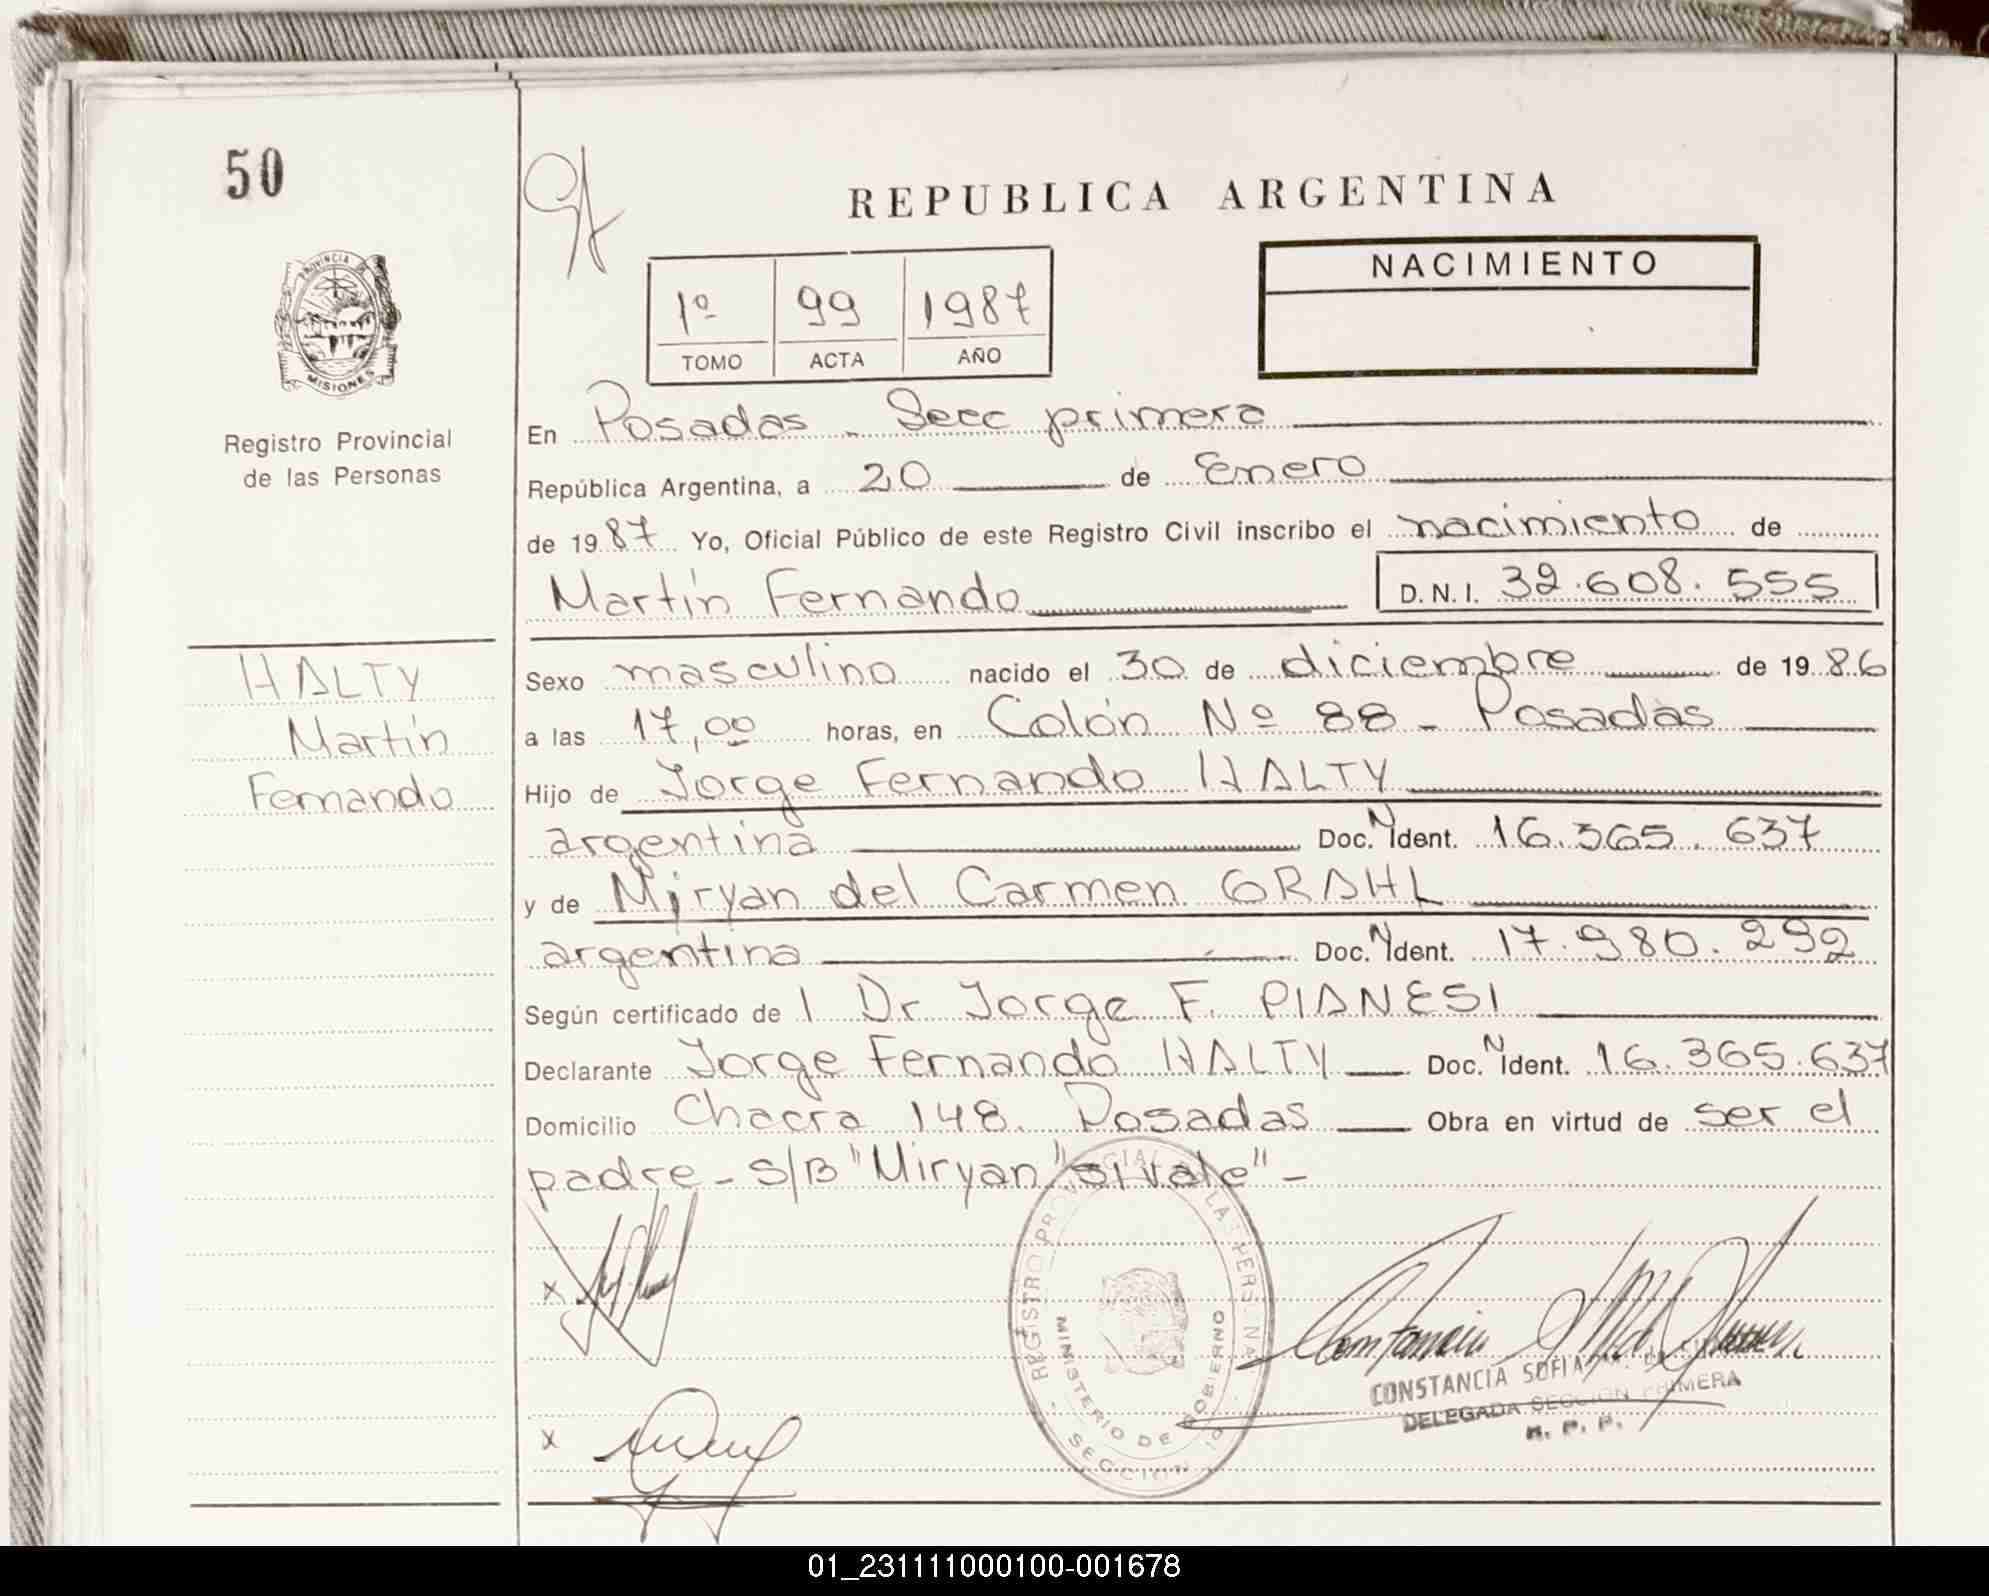 50
REPUBLICA ARGENTINA
PROVINCIA DE
MISIONES
Registro Provincial
de las Personas
1º 99 1987
TOMO ACTA AÑO
NACIMIENTO
En Posadas - Secc primera
República Argentina, a 20 de Enero
de 1987 Yo, Oficial Público de este Registro Civil inscribo el nacimiento de
Martín Fernando D.N.I. 32.608.555
HALTY
Martín
Fernando
Sexo masculino nacido el 30 de diciembre de 1986
a las 17,00 horas, en Colón Nº 88 - Posadas
Hijo de Jorge Fernando HALTY
argentina Doc. N Ident. 16.365.637
y de Miryan del Carmen GRAHL
argentina Doc. N Ident. 17.980.292
Según certificado de l Dr Jorge F. PIANESI
Declarante Jorge Fernando HALTY Doc. N Ident. 16.365.637
Domicilio Chacra 148. Posadas Obra en virtud de ser el
padre - S/B "Miryan" si vale" -
REGISTRO PROVINCIAL LAS PERSONAS
MINISTERIO DE GOBIERNO
SECCION
x
x
CONSTANCIA SOFIA
DELEGADA SECCION PRIMERA
R. P. P.
01_231111000100-001678